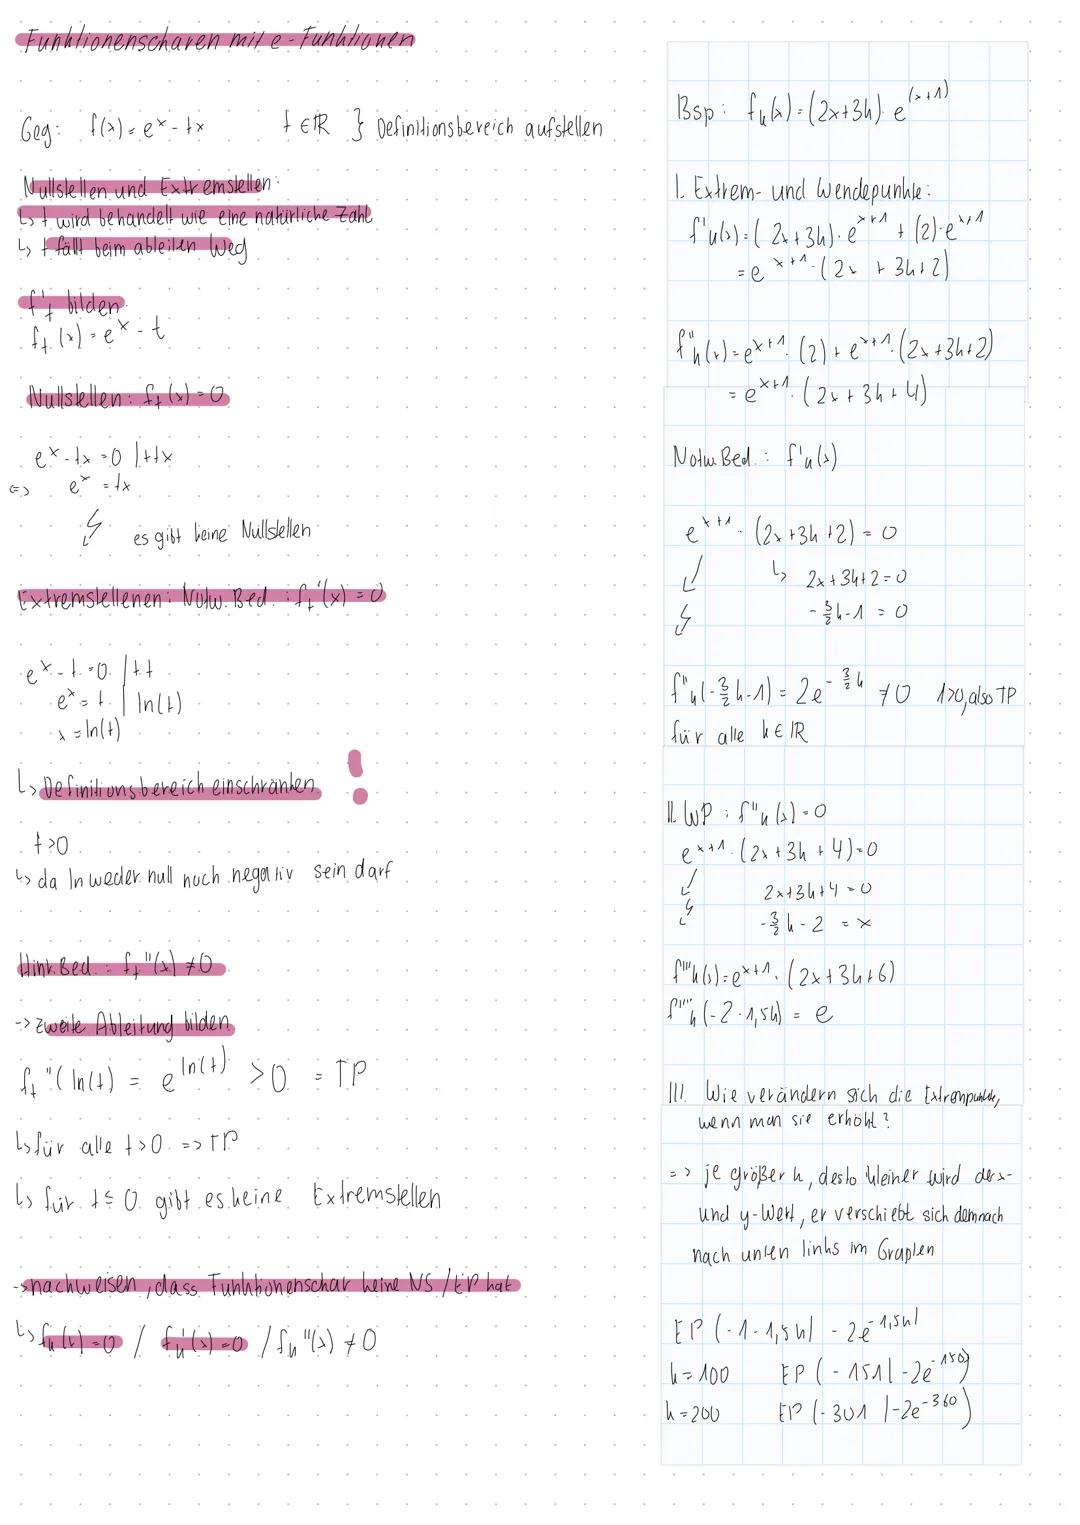 Funktionenscharen mit e-Funktionen
Geg: f(x) = e^x - tx t ∈ ℝ } Definitionsbereich aufstellen
Nullstellen und Extremstellen:
↳ t wird behandelt wie eine natürliche Zahl
↳ t fällt beim ableiten weg
f'_t bilden
f_t(x) = e^x - t
Nullstellen: f_t(x) = 0
e^x - tx = 0 | +tx
<=> e^x = tx
↯ es gibt keine Nullstellen
Extremstellenen: Notw. Bed.: f_t'(x) = 0
e^x - t = 0 | +t
e^x = t | ln(t)
x = ln(t)
↳ Definitionsbereich einschränken !
t>0
↳ da ln weder null noch negativ sein darf
Hint. Bed.: f_t''(x) ≠ 0
-> zweite Ableitung bilden
f_t''(ln(t) = e^ln(t) > 0 = TP
↳ für alle t>0 => TP
↳ für t ≤ 0 gibt es keine Extremstellen
-> nachweisen, dass Funktionenschar keine NS / EP hat
↳ f_k(x) = 0 / f_k'(x) = 0 / f_k''(x) ≠ 0
Bsp: f_k(x) = (2x+3k) · e^(x+1)
I. Extrem- und Wendepunkte:
f'_k(x) = (2x+3k) · e^x+1 + (2) · e^x+1
= e^x+1 · (2x + 3k+2)
f''_k(x) = e^x+1 · (2) + e^x+1 · (2x+3k+2)
= e^x+1 · (2x + 3k + 4)
Notw. Bed.: f'_k(x)
e^x+1 · (2x+3k+2) = 0
↓ ↳ 2x+3k+2=0
↯ -3/2 k-1 = 0
f''_k(-3/2 k-1) = 2e^-3/2 k ≠0 1>0, also TP
für alle k ∈ ℝ
II. WP: f''_k(x) = 0
e^x+1 · (2x+3k+4)=0
↓ 2x+3k+4 = 0
↯ -3/2 k - 2 = x
f'''_k(x) = e^x+1 · (2x+3k+6)
f''''_k(-2-1,5k) = e
III. Wie verändern sich die Extrempunkte,
wenn man sie erhöht?
=> je größer k, desto kleiner wird der x-
und y-Wert, er verschiebt sich demnach
nach unten links im Graphen
EP (-1-1,5k| -2e^-1,5k|
k=100 EP (-151|-2e^-150)
k=200 EP (-301 |-2e^-360)